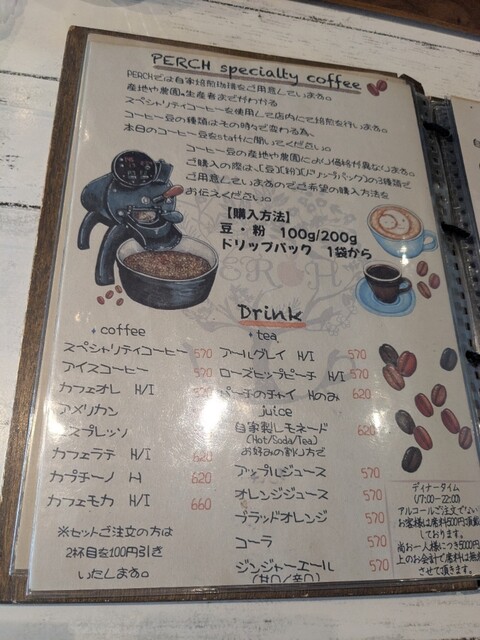 PERCH specialty coffee
PERCHでは自家焙煎珈琲をご用意しています。
産地や農園、生産者まで分かる
スペシャリティコーヒーを使用して店内にて焙煎を行います。
コーヒー豆の種類はその時々で変わる為、
本日のコーヒー豆をstaffに聞いてください。
コーヒー豆の産地や農園により価格が異なります。
ご購入の際は、[豆][粉][ドリップパック]の3種類で
ご用意していますのでご希望の購入方法を
お伝えください。
【購入方法】
豆・粉 100g/200g
ドリップパック 1袋から
Drink
coffee
スペシャリティコーヒー 570
アイスコーヒー 570
カフェオレ H/I
アメリカン
エスプレッソ
カフェラテ H/I 620
カプチーノ H 620
カフェモカ H/I 660
※セットご注文の方は
2杯目を100円引き
いたします。
tea
アールグレイ H/I 570
ローズヒップピーチ H/I 570
パーチのチャイ Hのみ 620
juice
自家製レモネード 620
(Hot/Soda/Tea)
お好みの割り方で
アップルジュース 570
オレンジジュース 570
ブラッドオレンジ 570
コーラ 570
ジンジャーエール 570
(甘口/辛口)
ディナータイム
(17:00~22:00)
アルコールご注文でない
お客様は席料500円頂戴
しております。
尚お一人様につき5000円
上のお会計で席料は無料
させて頂きます。